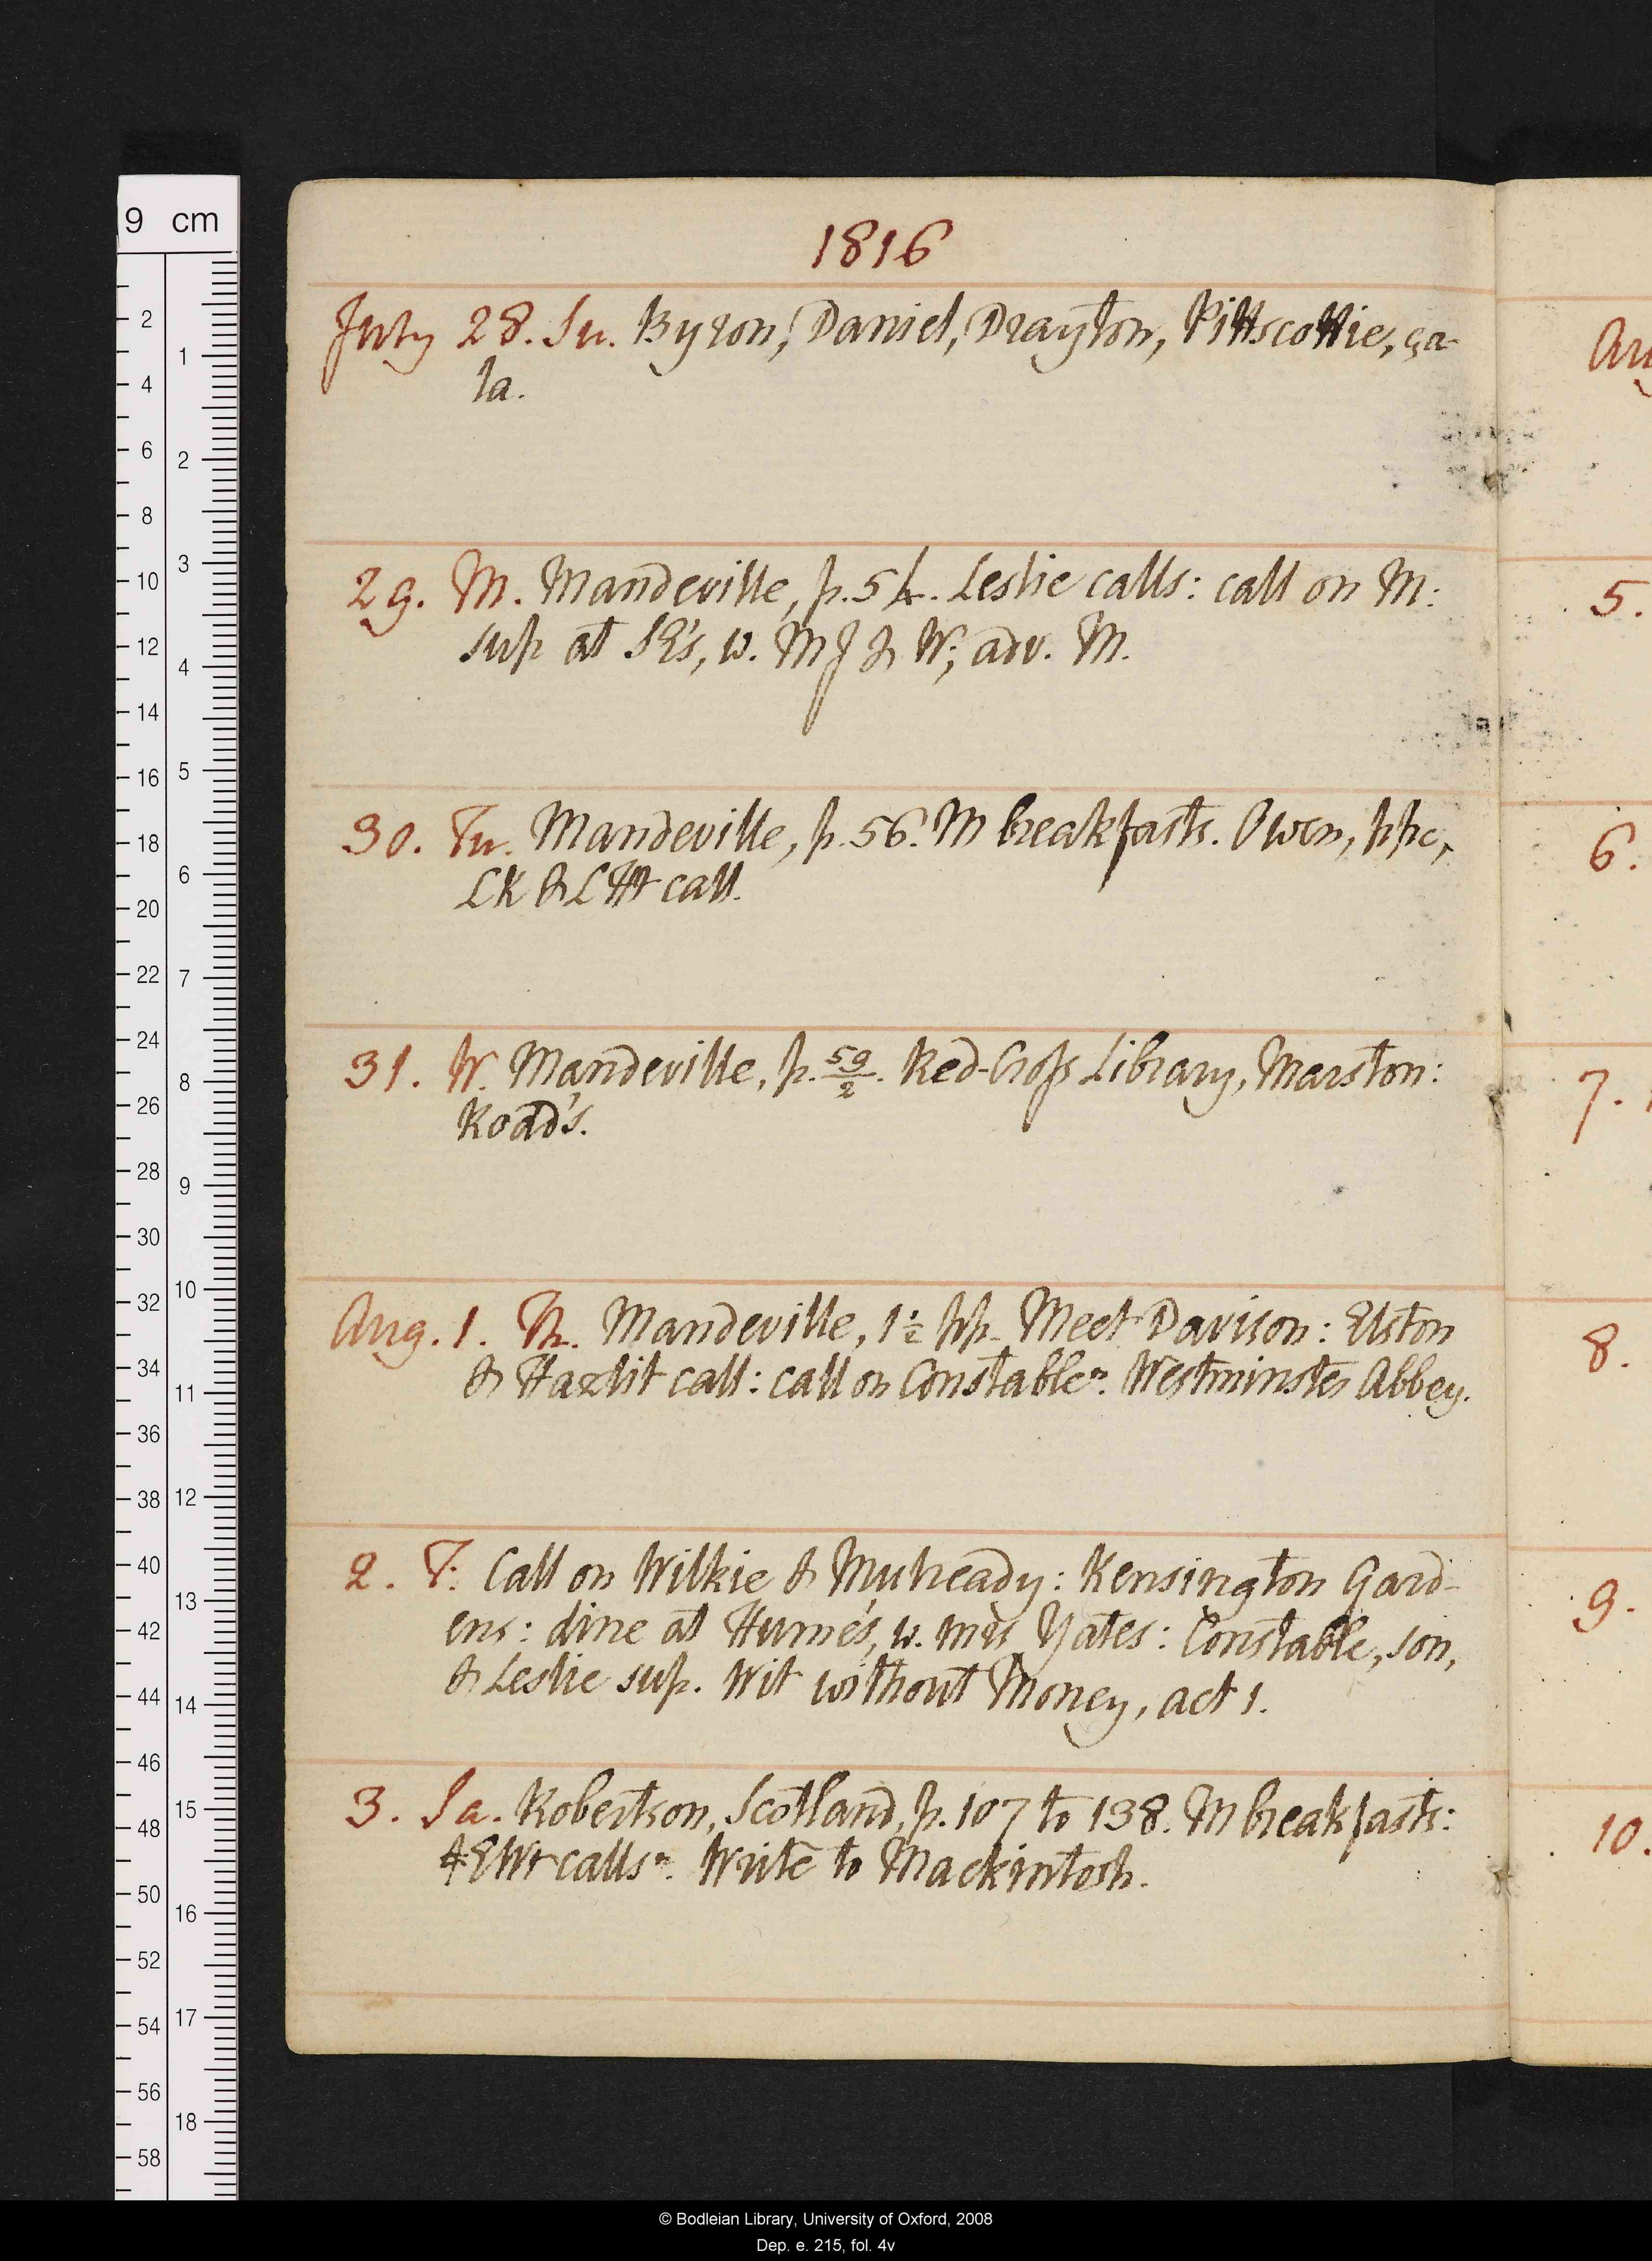 1816
July 28. Su. Byron, Daniel, Drayton, Pittscottie, ça-
la.
29. M. Mandeville, p. 54. Leslie calls: call on M:
sup at SR's, w. MJ & W; adv. M.
30. Tu. Mandeville, p. 56. M breakfasts. Owen, ppc,
LK & L Ht call.
31. W. Mandeville, p. 59/2. Red-Cross Library, Marston:
Road's.
Aug. 1. Th. Mandeville, 1½ pp. Meet Davison: Elston
& Hazlit call: call on Constable n. Westminster Abbey.
2. F. Call on Wilkie & Mulready: Kensington Gard-
ens: dine at Hume's, w. mrs Yates: Constable, son,
& Leslie sup. Wit without Money, act 1.
3. Sa. Robertson, Scotland, p. 107 to 138. M breakfasts:
calls n. Write to Mackintosh.
Au
5.
6.
7.
8.
9.
10.
9 cm
2
4
6
8
10
12
14
16
18
20
22
24
26
28
30
32
34
36
38
40
42
44
46
48
50
52
54
56
58
1
2
3
4
5
6
7
8
9
10
11
12
13
14
15
16
17
18
© Bodleian Library, University of Oxford, 2008
Dep. e. 215, fol. 4v